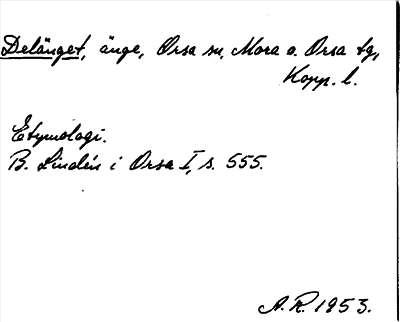 Delänget, änge, Orsa sn, Mora o. Orsa tg,
Kopp. l.
Etymologi.
B. Lindén i Orsa I, s. 555.
A.R. 1953.